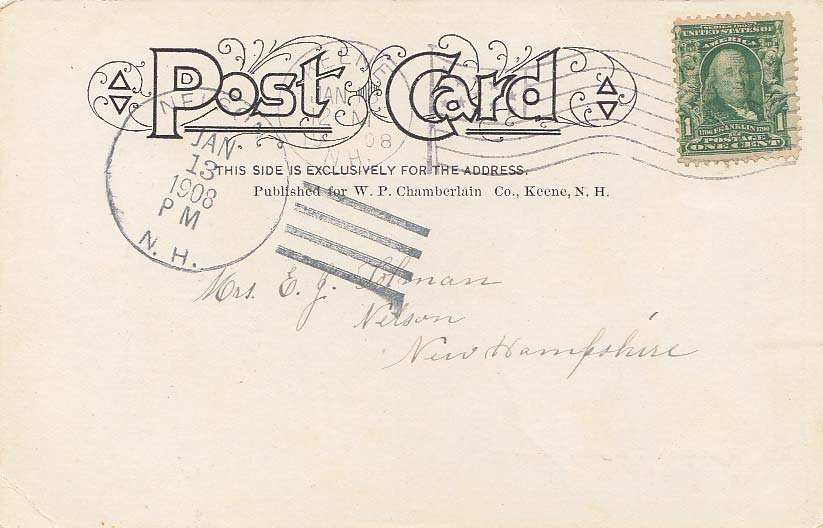 Post Card
THIS SIDE IS EXCLUSIVELY FOR THE ADDRESS.
Published for W. P. Chamberlain Co., Keene, N. H.
SERIES 1902
UNITED STATES OF
AMERICA
1 1706 FRANKLIN 1790 1
POSTAGE
ONE CENT
KEENE
JAN
12 M
08
N.H.
NELSON
JAN
13
1908
PM
N. H.
Mrs. E. J. Tolman
Nelson
New Hampshire